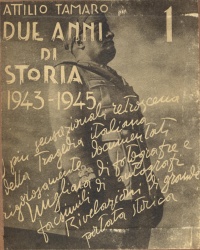 ATTILIO TAMARO
1
DUE ANNI
DI
STORIA
1943-1945
I più sensazionali retroscena
della tragedia italiana
rigorosamente documentati
Migliaia di fotografie e
facsimili di autografi
Rivelazioni di grande
portata storica